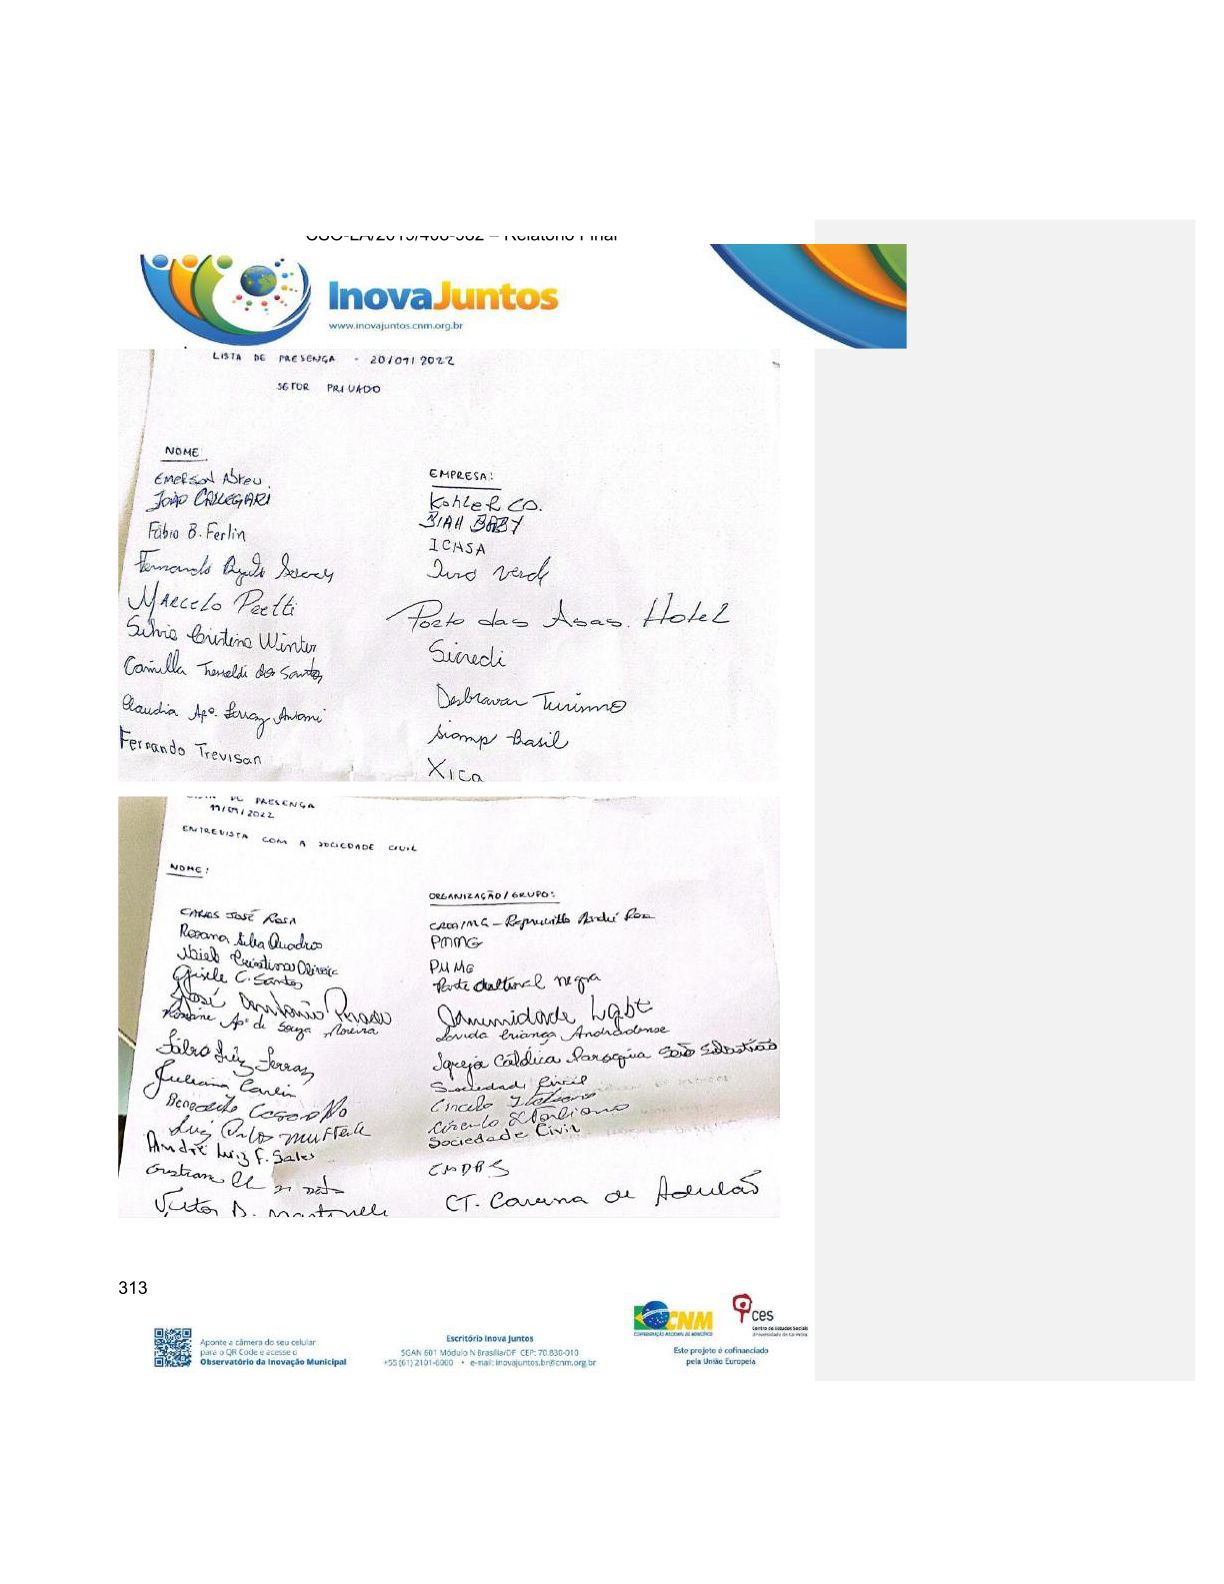 InovaJuntos
www.inovajuntos.cnm.org.br
LISTA DE PRESENÇA - 20/09/2022
SETOR PRIVADO
NOME
EMPRESA:
Emerson Abreu
Kohler CO.
JOÃO CALLEGARI
BIAH BABY
Fábio B. Ferlin
ICASA
Fernando
verde
Marcelo Peetti
Porto das Asas Hotel
Silvia Cristina Winter
Sicredi
Camilla dos Santos
Desbravar Turismo
Claudia Apª. Ferraz
Siamp Brasil
Fernando Trevisan
Xica
DE PRESENÇA
19/09/2022
ENTREVISTA COM A SOCIEDADE CIVIL
NOME:
ORGANIZAÇÃO / GRUPO:
CARLOS JOSÉ ROSA
André
Rosana Silva Quadros
PMMG
Cristina Oliveira
PMMG
Gisele C. Santos
Cultural negra
José Antônio Prado
Comunidade Lgbt
Rosaine Apª de Souza Moreira
Criança Andradense
Fábio Luiz Ferraz
Igreja Católica Paroquia São Sebastião
Juliana
Sociedade Civil
Benedito
Circulo Italiano
Luiz Carlos
Circulo Italiano
André Luiz F. Sales
Sociedade Civil
CMDRS
Victor D. Martinelli
CT. Caverna de
313
Aponte a câmera do seu celular
para o QR Code e acesse o
Observatório da Inovação Municipal
Escritório Inova Juntos
SGAN 601 Módulo N Brasília/DF CEP: 70.830-010
+55 (61) 2101-6000 • e-mail: inovajuntos.br@cnm.org.br
CNM
CONFEDERAÇÃO NACIONAL DE MUNICÍPIOS
ces
Centro de Estudos Sociais
Universidade de Coimbra
Este projeto é cofinanciado
pela União Europeia